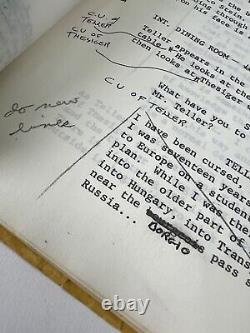 on his face is
INT. DINING ROOM -
C.U. of
TELLER
CU OF
THESIGER
Teller appears in the
table. He looks at
then looks at Thesiger
CU
OF TELLER
What have you to
Mr. Teller?
do new
lines
TELL
I have been cursed
I was seventeen years
to Europe on a student
plan. While I was
into the older part of
into Hungary, into Trans
near the pass
BORGIO
Russia...
ebay